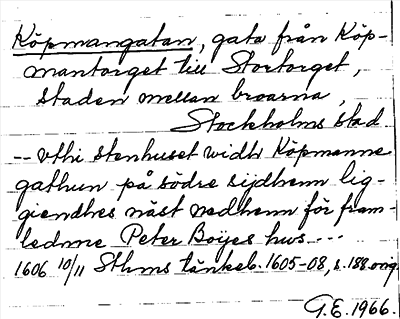 Köpmangatan, gata från Köp-
mantorget till Stortorget,
staden mellan broarna,
Stockholms stad
-- vthi stenhuset widh Köpmanne
gathun på södre sijdhenn lig-
giendhes näst nedhenn för fram-
lednne Peter Boijes hws ---
1606 10/11 Sthms tänkeb. 1605-08, s. 188 orig.
G.E. 1966.